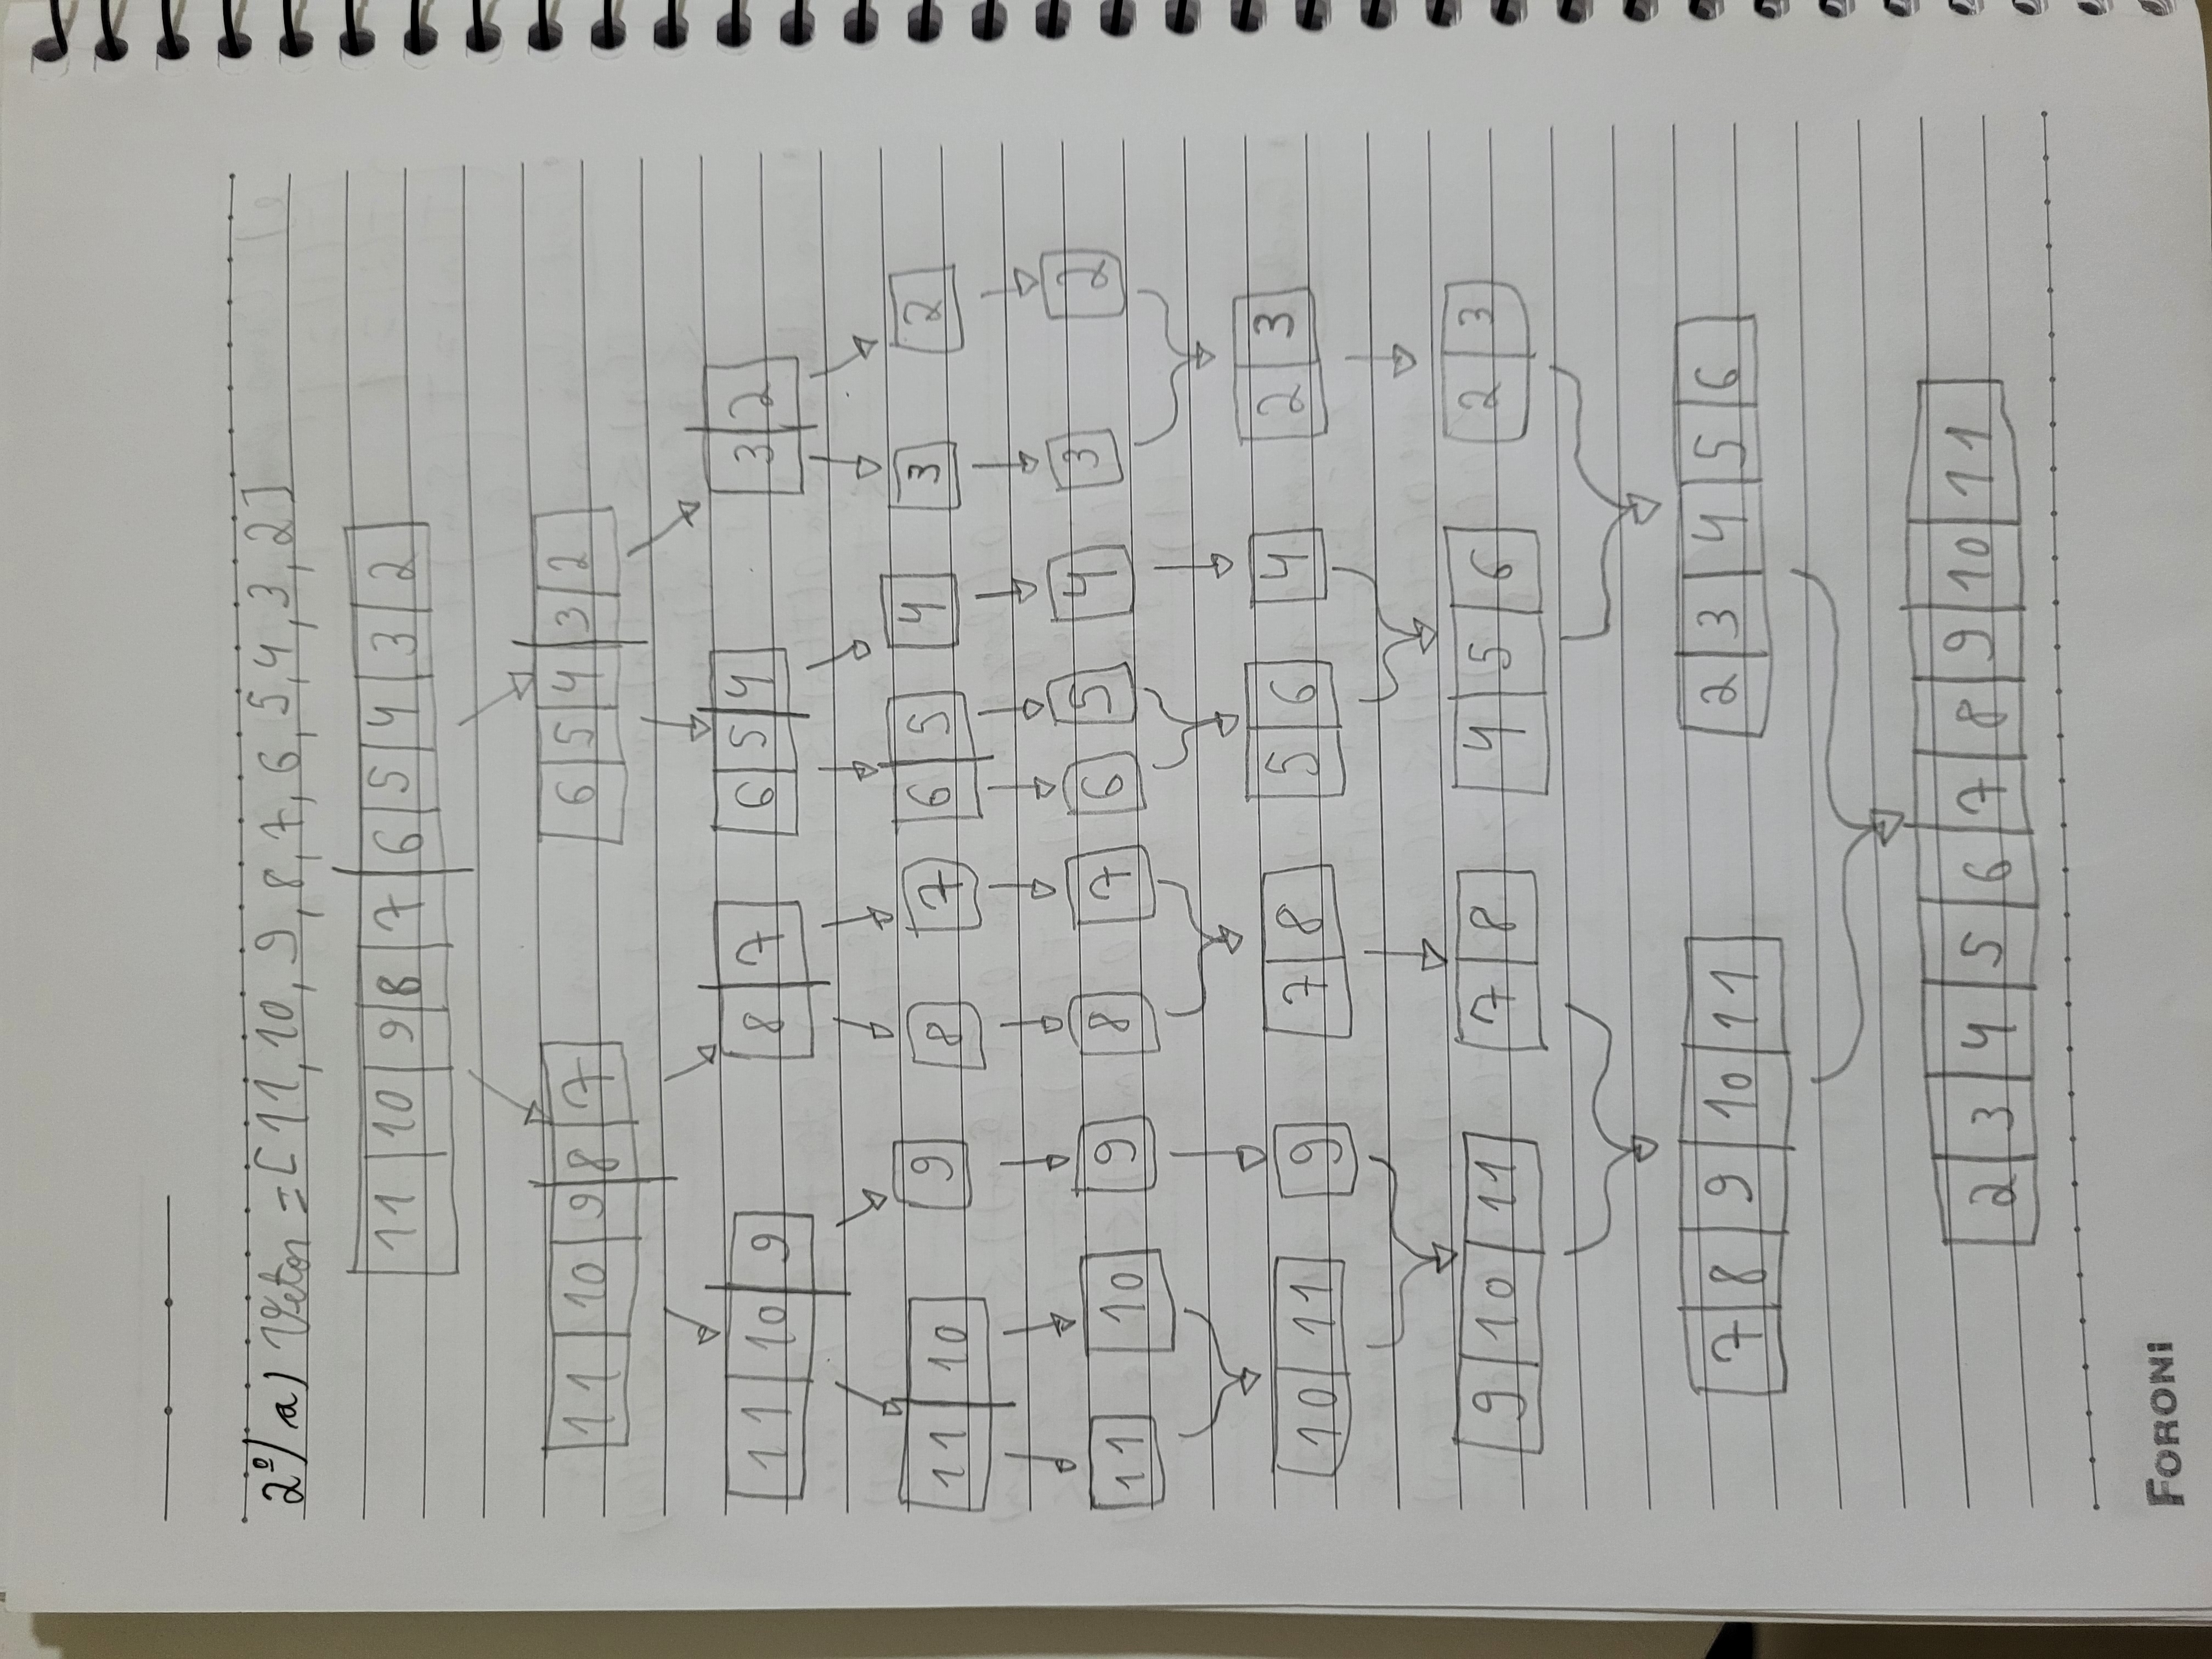 2º) a) Vetor = [11, 10, 9, 8, 7, 6, 5, 4, 3, 2]
11 10 9 8 7 6 5 4 3 2
11 10 9 8 7 6 5 4 3 2
11 10 9 8 7 6 5 4 3 2
11 10 9 8 7 6 5 4 3 2
11 10 9 8 7 6 5 4 3 2
10 11 9 7 8 5 6 4 2 3
9 10 11 7 8 4 5 6 2 3
7 8 9 10 11 2 3 4 5 6
2 3 4 5 6 7 8 9 10 11
FORONI